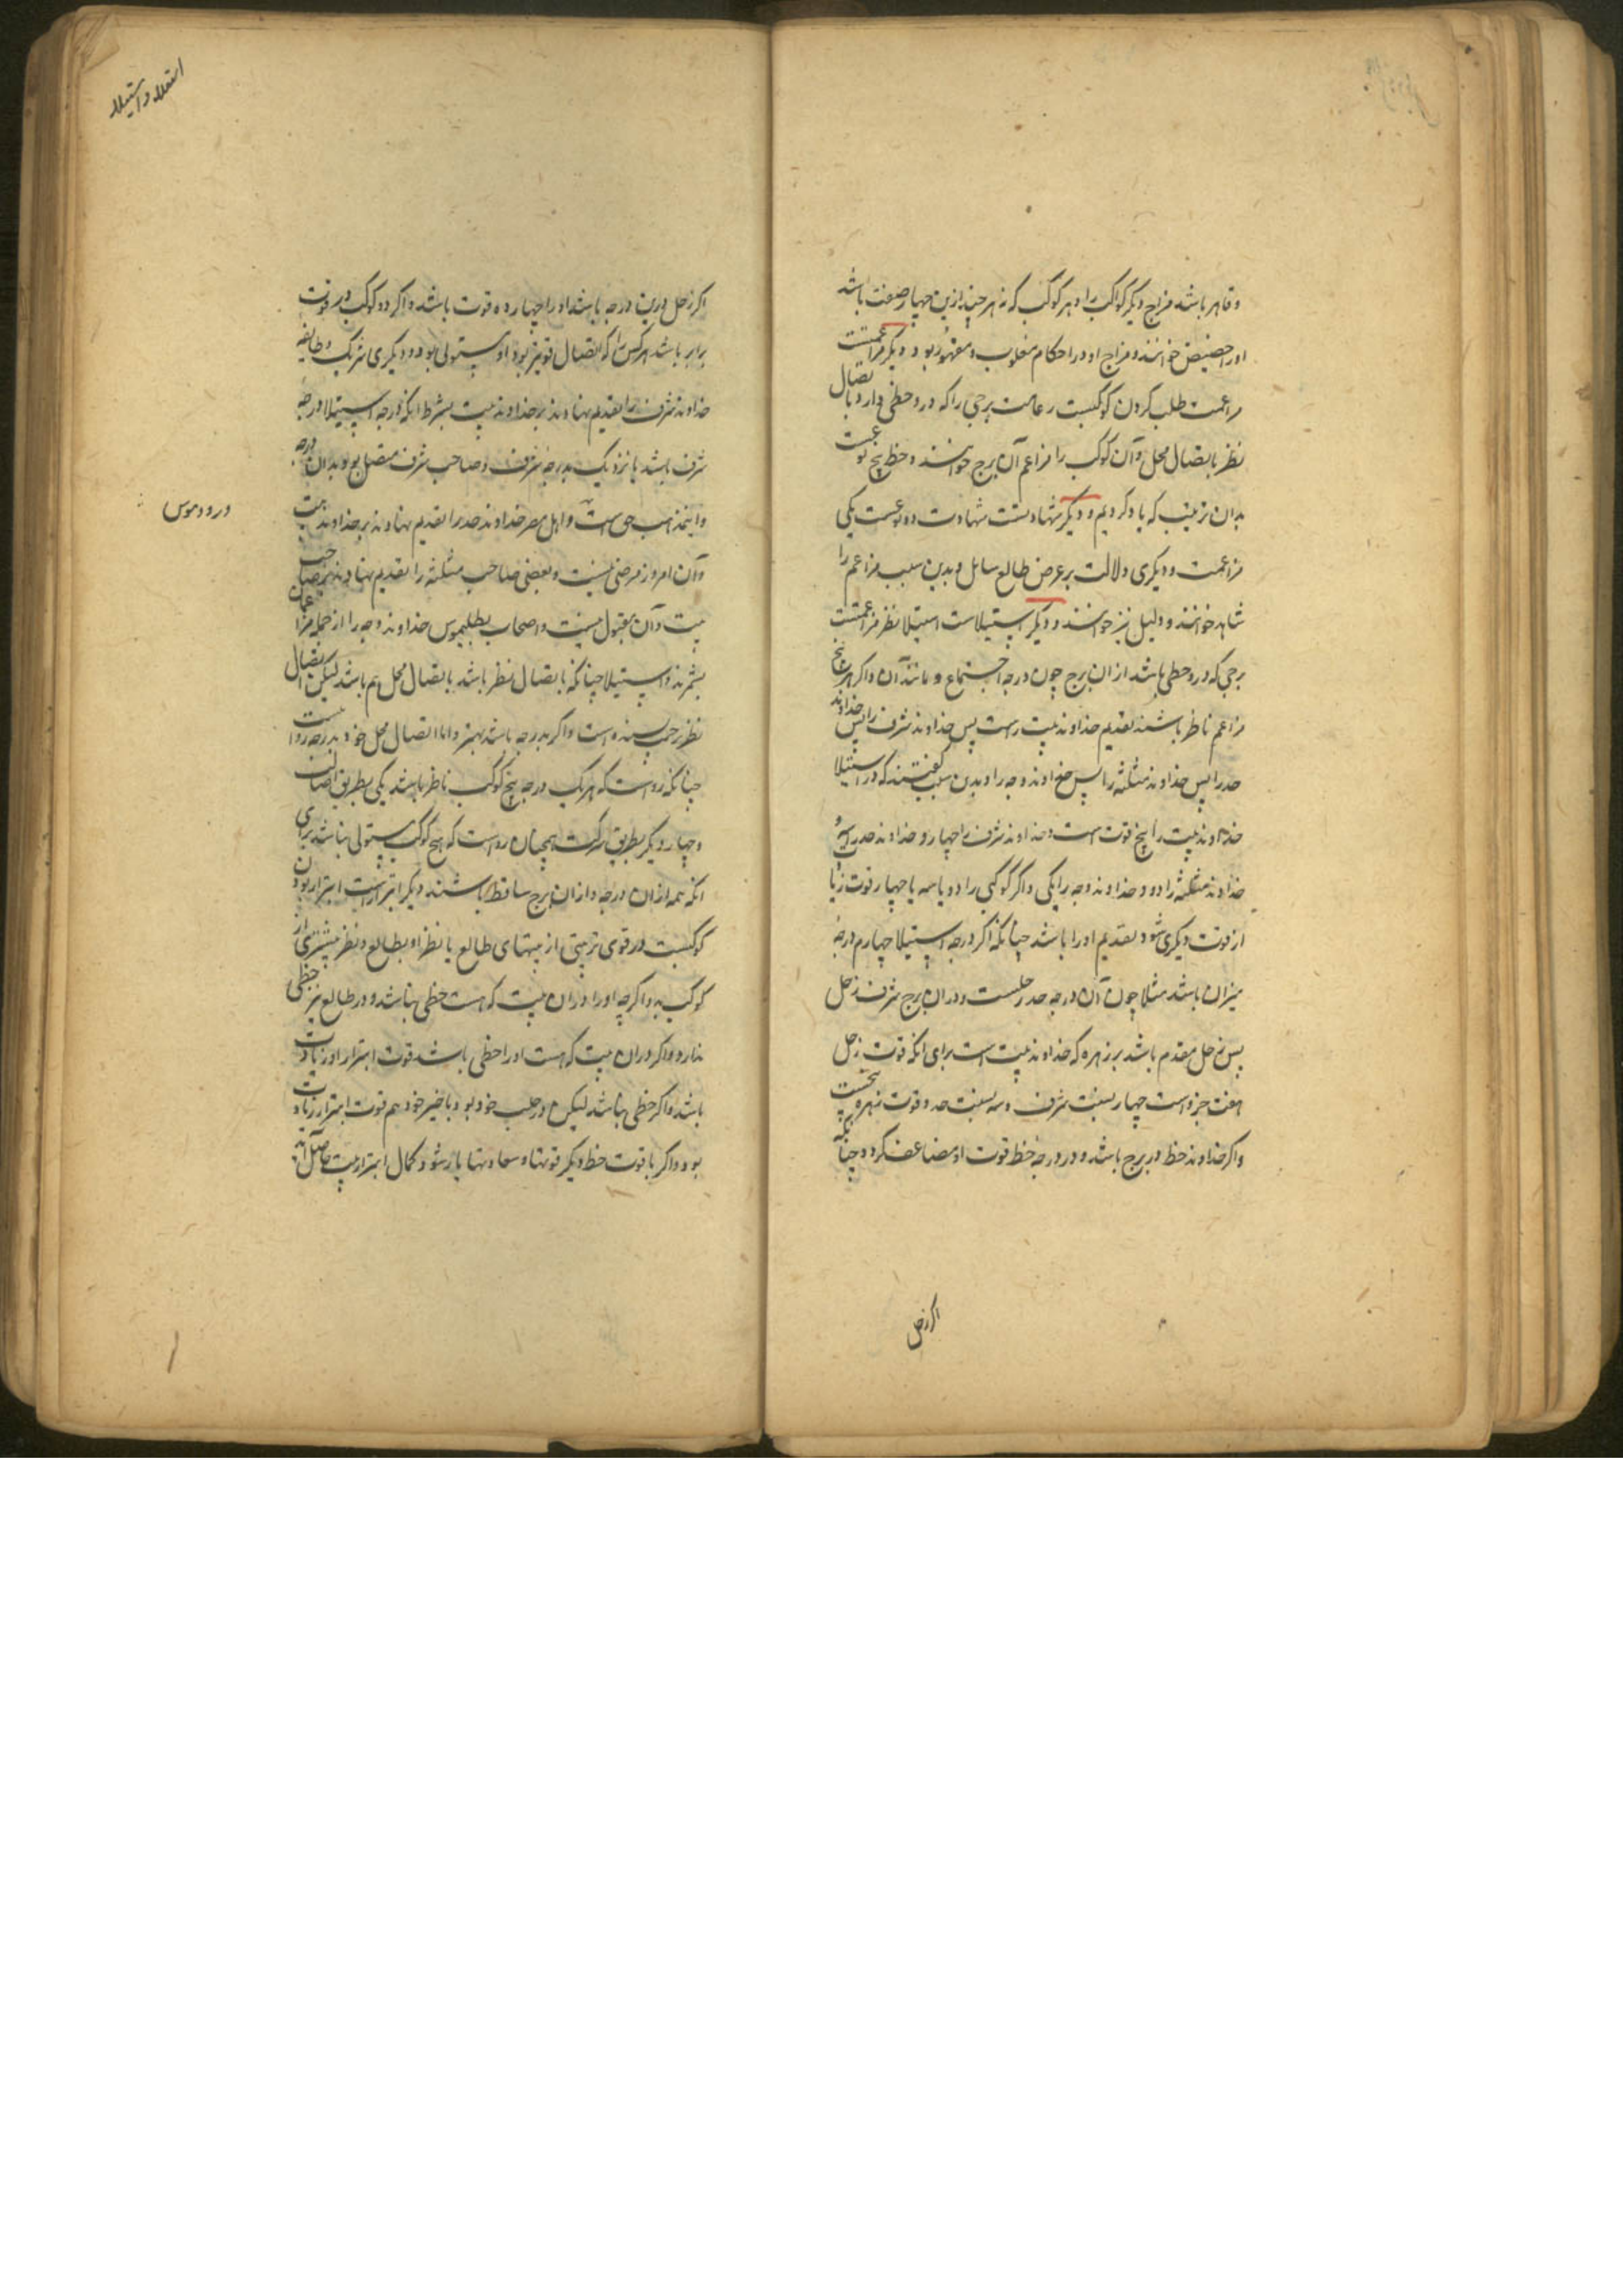 و قاهر باشد مزاج دیگر کواکب را و هر کوکب که نه هر چند ازین چهار صفت باشد
اورا حضیض خوانند و مزاج او در احکام مغلوب و مقهور بود و دیگر مزاعمتست
مزاعمت طلب کردن کوکبست رعایت برجی را که درو حظی دارد باتصال
نظر یا بتصال محل و آن کوکب را مزاعم آن برج خوانند و حظ پنج نوعست
بدان ترتیب که یاد کردیم و دیگر شهادتست شهادت دو نوعست یکی
مزاعمت و دیگری دلالت بر غرض طالع سایل و بدین سبب مزاعم را
شاهد خوانند و دلیل نیز خوانند و دیگر استیلاست استیلا نظر مزاعمتست
برجی که درو حظی باشد ازان برج چون درجه اجتماع و مانند آن و اگر هر پنج
مزاعم ناظر باشند تقدیم خداوند بیت راست پس خداوند شرف را پس خداوند
حد را پس خداوند مثلثه را پس خداوند وجه را و بدین سبب گفتند که در استیلا
خداوند بیت را پنج قوت است و خداوند شرف را چهار و خداوند حد را سه و
خداوند مثلثه را دو و خداوند وجه را یکی و اگر کوکبی را دو یا سه یا چهار قوت زیا
از قوت دیگری شود تقدیم او را باشد چنانکه اگر درجه استیلا چهارم درجه
میزان باشد مثلا چون آن درجه حد زحلست و دران برج شرف زحل
پس زحل مقدم باشد بر زهره که خداوند بیت است برای انکه قوت زحل
هفت جزوست چهار بسبب شرف و سه بسبب حد و قوت زهره پنجست
و اگر خداوند حظ در برج باشد و در درجه حظ قوت او مضاعف گردد چنانکه
اگر زحل
استعلا و استیلا
اگر زحل درین درجه باشد او را چهارده قوت باشد و اگر دو کوکب در قوت
برابر باشد هر کس را که اتصال قویتر بود او مستولی بود و دیگری شریک و طایفه
خداوند شرف را تقدیم نهادند بر خداوند بیت بشرط انکه درجه استیلا درجه
شرف باشد یا نزدیک بدرجه شرف و صاحب شرف متصل بود بدان درجه
و این مذهب حق است و اهل مصر خداوند حد را تقدیم نهادند بر خداوند بیت
و آن امروز مرضی نیست و بعضی صاحب مثلثه را تقدیم نهادند بر صاحب
بیت و آن مقبول نیست و اصحاب بطلیموس خداوند وجه را از جمله مزاعمان
نشمرند و استیلا چنانکه باتصال نظر باشد باتصال محل هم باشد لیکن اتصال
نظر برجی بسنده است و اگر بدرجه باشد بهتر و اما اتصال محل خود بدرجه رواست
چنانکه رواست که هر یک درجه پنج کوکب ناظر باشد یکی بطریق اصالت
و چهار دیگر بطریق شرکت همچنان رواست که هیچ کوکب مستولی نباشد برای
انکه همه ازان درجه و ازان برج ساقط باشند دیگر ابتزازست ابتزاز بودن
کوکبست در قوی ترین بیتی از بیتهای طالع یا نظر او بطالع و نظر بیشتری از
کواکب بدو اگر چه او را دران بیت که هست حظی نباشد و در طالع نیز حظی
ندارد و اگر دران بیت که هست او را حظی باشد قوت ابتزاز او زیادت
باشد و اگر حظی نباشد لیکن در حلب خود بود یا حیز خود هم قوت ابتزاز زیادت
بود و اگر با قوت حظ دیگر قوتها و سعادتها یار شود کمال ابتزازیت حاصل آید
درودموس